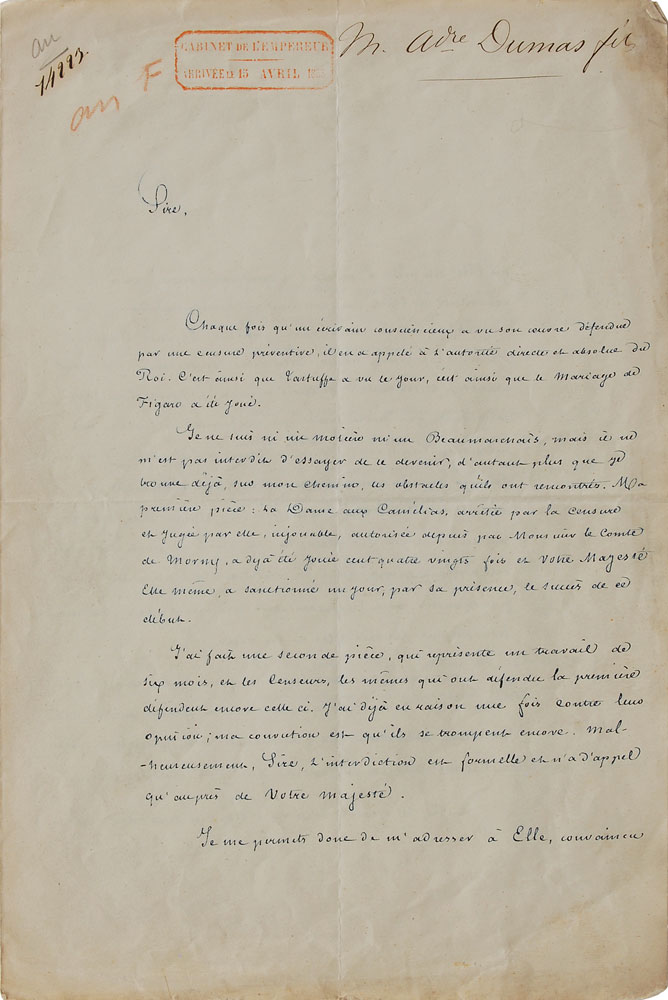 an
14993.
an F
CABINET DE L'EMPEREUR
ARRIVÉE LE 15 AVRIL
M. Adre Dumas fils
Sire,
Chaque fois qu'un écrivain consciencieux a vu son œuvre défendue
par une censure préventive, il en a appelé à l'autorité directe et absolue du
Roi. C'est ainsi que Tartuffe a vu le jour, c'est ainsi que le Mariage de
Figaro a été joué.
Je ne suis ni un molière ni un Beaumarchais, mais il ne
m'est pas interdit d'essayer de le devenir, d'autant plus que je
trouve déjà, sur mon chemin, les obstacles qu'ils ont rencontrés. Ma
première pièce : La Dame aux Camélias, arrêtée par la censure
et jugée par elle, injouable, autorisée depuis par Monsieur le Comte
de Morny, a déjà été jouée cent quatre vingts fois et Votre Majesté
Elle même, a sanctionné un jour, par sa présence, le succès de ce
début.
J'ai fait une seconde pièce, qui représente un travail de
six mois, et les Censeurs, les mêmes qui ont défendu la première
défendent encore celle ci. J'ai déjà eu raison une fois contre leur
opinion ; ma conviction est qu'ils se trompent encore. Mal-
-heureusement, Sire, l'interdiction est formelle et n'a d'appel
qu'auprès de Votre majesté.
Je me permets donc de m'adresser à Elle, convaincu